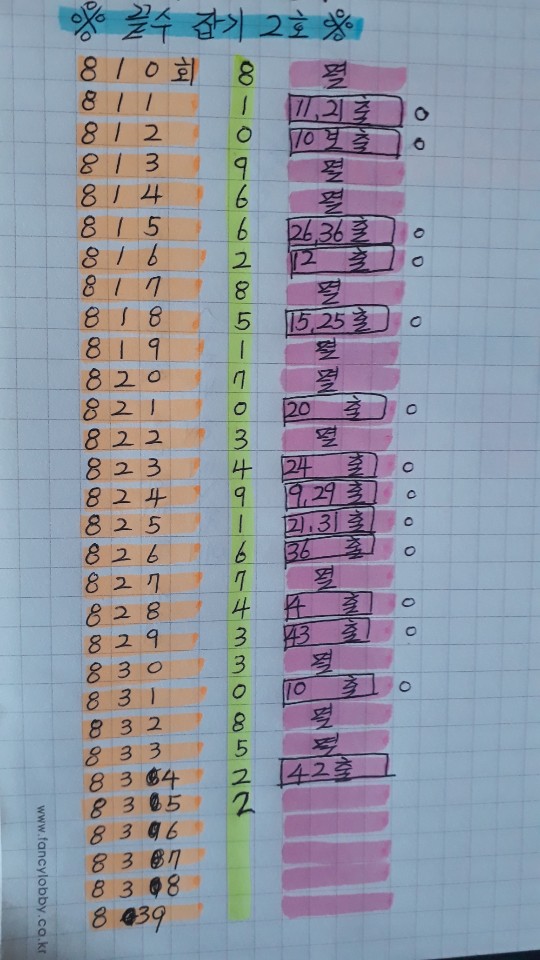 ※ 끝수 잡기 2호 ※
810회 8 멸
811 1 11,21 출 o
812 0 10 보 출 o
813 9 멸
814 6 멸
815 6 26,36 출 o
816 2 12 출 o
817 8 멸
818 5 15,25 출 o
819 1 멸
820 7 멸
821 0 20 출 o
822 3 멸
823 4 24 출 o
824 9 9,29 출 o
825 1 21,31 출 o
826 6 36 출 o
827 7 멸
828 4 4 출 o
829 3 43 출 o
830 3 멸
831 0 10 출 o
832 8 멸
833 5 멸
834 2 42출
835 2
836
837
838
839
www.fancylobby.co.kr